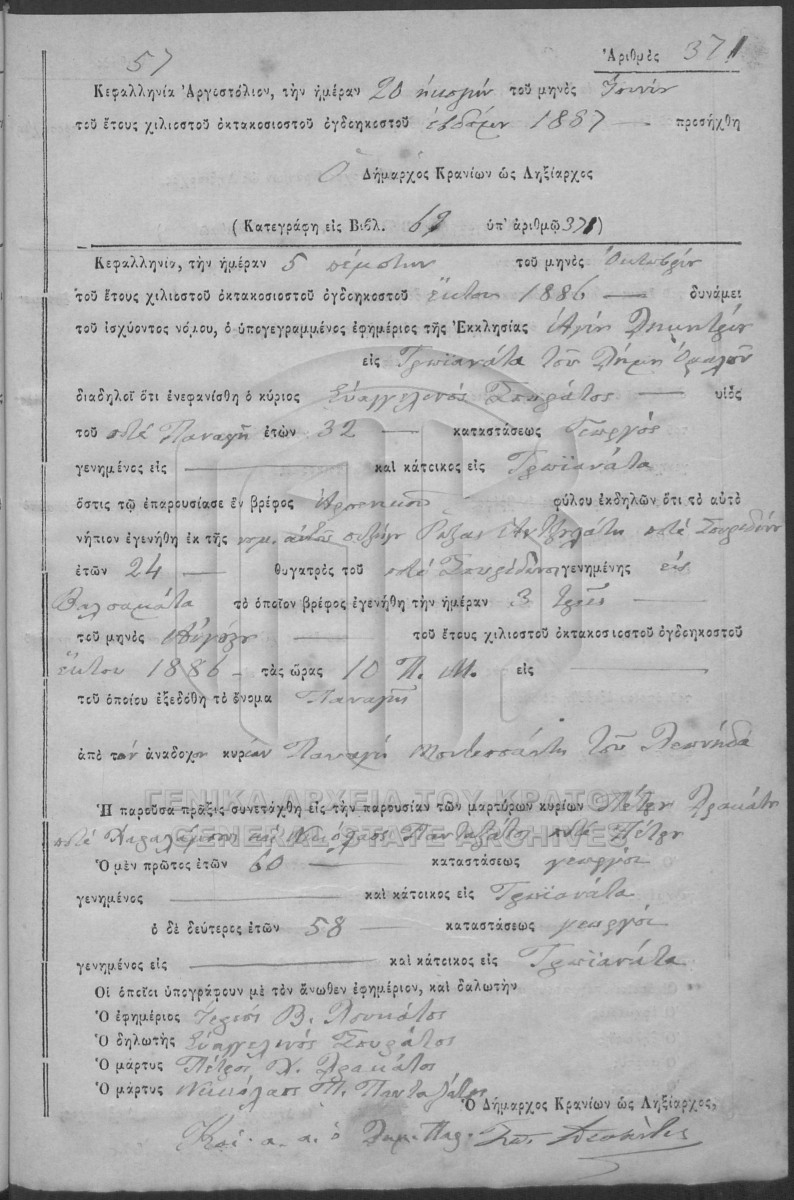 57
Ἀριθμὸς 371
Κεφαλληνία Ἀργοστόλιον, τὴν ἡμέραν 20 εἰκοστὴν τοῦ μηνὸς Ἰουνίου
τοῦ ἔτους χιλιοστοῦ ὀκτακοσιοστοῦ ὀγδοηκοστοῦ ἑβδόμου 1887 — προσήχθη
Ὁ Δήμαρχος Κρανίων ὡς Ληξίαρχος
(Κατεγράφη εἰς Βιβλ. 69 ὑπ' ἀριθμῷ 371)
Κεφαλληνία, τὴν ἡμέραν 5 πέμπτην τοῦ μηνὸς Ὀκτωβρίου
τοῦ ἔτους χιλιοστοῦ ὀκτακοσιοστοῦ ὀγδοηκοστοῦ ἕκτου 1886 — δυνάμει
τοῦ ἰσχύοντος νόμου, ὁ ὑπογεγραμμένος ἐφημέριος τῆς Ἐκκλησίας Ἁγίου Δημητρίου
εἰς Τρωϊανάτα τοῦ Δήμου Ὁμαλῶν
διαδηλοῖ ὅτι ἐνεφανίσθη ὁ κύριος Εὐαγγελινός — υἱὸς
τοῦ ποτὲ Παναγῆ ἐτῶν 32 — καταστάσεως Γεωργός
γενημένος εἰς — καὶ κάτοικος εἰς Τρωϊανάτα
ὅστις τῷ ἐπαρουσίασε ἓν βρέφος Ἀρσενικοῦ φύλου ἐκδηλῶν ὅτι τὸ αὐτὸ
νήπιον ἐγενήθη ἐκ τῆς νομ. αὐτοῦ συζύγου ποτὲ Σπυρίδωνος
ἐτῶν 24 — θυγατρὸς τοῦ ποτὲ Σπυρίδωνος γενημένης εἰς
Βαλσαμάτα τὸ ὁποῖον βρέφος ἐγενήθη τὴν ἡμέραν 3 τρεῖς —
τοῦ μηνὸς Αὐγούστου — τοῦ ἔτους χιλιοστοῦ ὀκτακοσιοστοῦ ὀγδοηκοστοῦ
ἕκτου 1886 — τὰς ὥρας 10 Π. Μ. εἰς —
τοῦ ὁποίου ἐξεδόθη τὸ ὄνομα Παναγῆς
ἀπὸ τὸν ἀνάδοχον κύριον Παναγῆ τοῦ Λεωνήδα
ΓΕΝΙΚΑ ΑΡΧΕΙΑ ΤΟΥ ΚΡΑΤΟΥΣ
GENERAL STATE ARCHIVES
Ἡ παροῦσα πρᾶξις συνετάχθη εἰς τὴν παρουσίαν τῶν μαρτύρων κυρίων Πέτρου
ποτὲ Χαραλάμπου καὶ Νικόλαος Πανταζάτος ποτὲ Πέτρου
Ὁ μὲν πρῶτος ἐτῶν 60 — καταστάσεως γεωργός
γενημένος — καὶ κάτοικος εἰς Τρωϊανάτα
ὁ δὲ δεύτερος ἐτῶν 58 — καταστάσεως γεωργός
γενημένος εἰς — καὶ κάτοικος εἰς Τρωϊανάτα
Οἱ ὁποῖοι ὑπογράφουν μὲ τὸν ἄνωθεν ἐφημέριον, καὶ δαλωτὴν
Ὁ ἐφημέριος Ἱερεύς Β. Λουκάτος
Ὁ δηλωτὴς Εὐαγγελινός
Ὁ μάρτυς Πέτρος Χ.
Ὁ μάρτυς Νικόλαος Π. Πανταζάτος
Ὁ Δήμαρχος Κρανίων ὡς Ληξίαρχος,